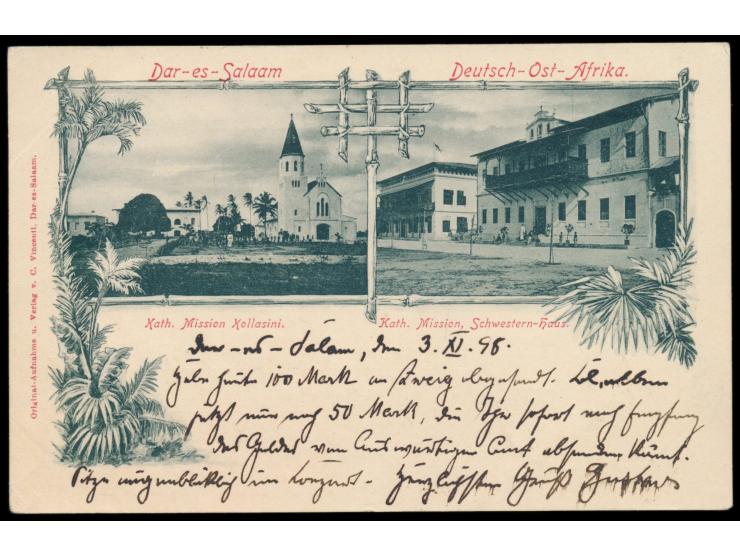 Dar-es-Salaam
Deutsch-Ost-Afrika.
Original-Aufnahme u. Verlag v. C. Vincenti, Dar-es-Salaam.
Kath. Mission Kollasini.
Kath. Mission, Schwestern-Haus.
Dar-es-Salam, den 3. XI. 98.
Habe heute 100 Mark an Zweig abgesandt.
jetzt nur noch 50 Mark, die Ihr sofort nach Empfang
des Geldes vom Auswärtigen Amt absenden könnt.
Sitze augenblicklich im Konzert. Herzlichsten Gruß